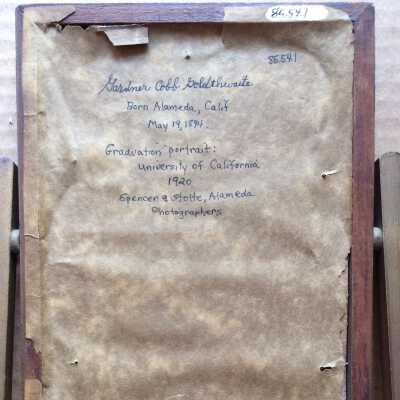 86.54.1
86.54.1
Gardner Cobb Goldthwaite
Born Alameda, Calif
May 19, 1894.
Graduation portrait:
University of California
1920
Spencer & Stolte, Alameda
Photographers